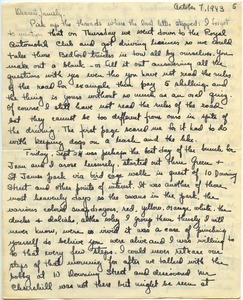 October 7, 1943 5
Dearest Family,
Pick up the threads where the last letter stopped. I forgot
to mention that on Thursday we went down to the Royal
Automobile Club and got driving licenses so we could
take those Red Cross in tow all by ourselves. You
make out a blank & tell it all answering all the
questions with yes even tho you have not read the rules
of the road for example, then pay 5 shillings and
the thing is yours without so much as an oral quiz.
Of course I still have not read the rules of the road
but they cannot be too different from ours in spite of
the driving. The first page scared me as it had to do
with keeping dogs on a leash and the like.
Friday, Sept 24 was perhaps the best day of the bunch for
Jean and I arose leisurely, started out thru Green &
St James park via bird cage walk in quest of 10 Downing
Street and other points of interest. It was another of those
most heavenly days so the swans in the park, the
various colored snapdragons, red, yellow, orange which the
and others too, I group them thusly I will
never know, were so vivid it was a case of pinching
yourself to believe you were alive and I was willing
to that every few steps. I could never retrace the
steps of that morning for after we talked with the
bobby at 10 Downing Street and discovered Mr
Churchill was not there but might be seen at